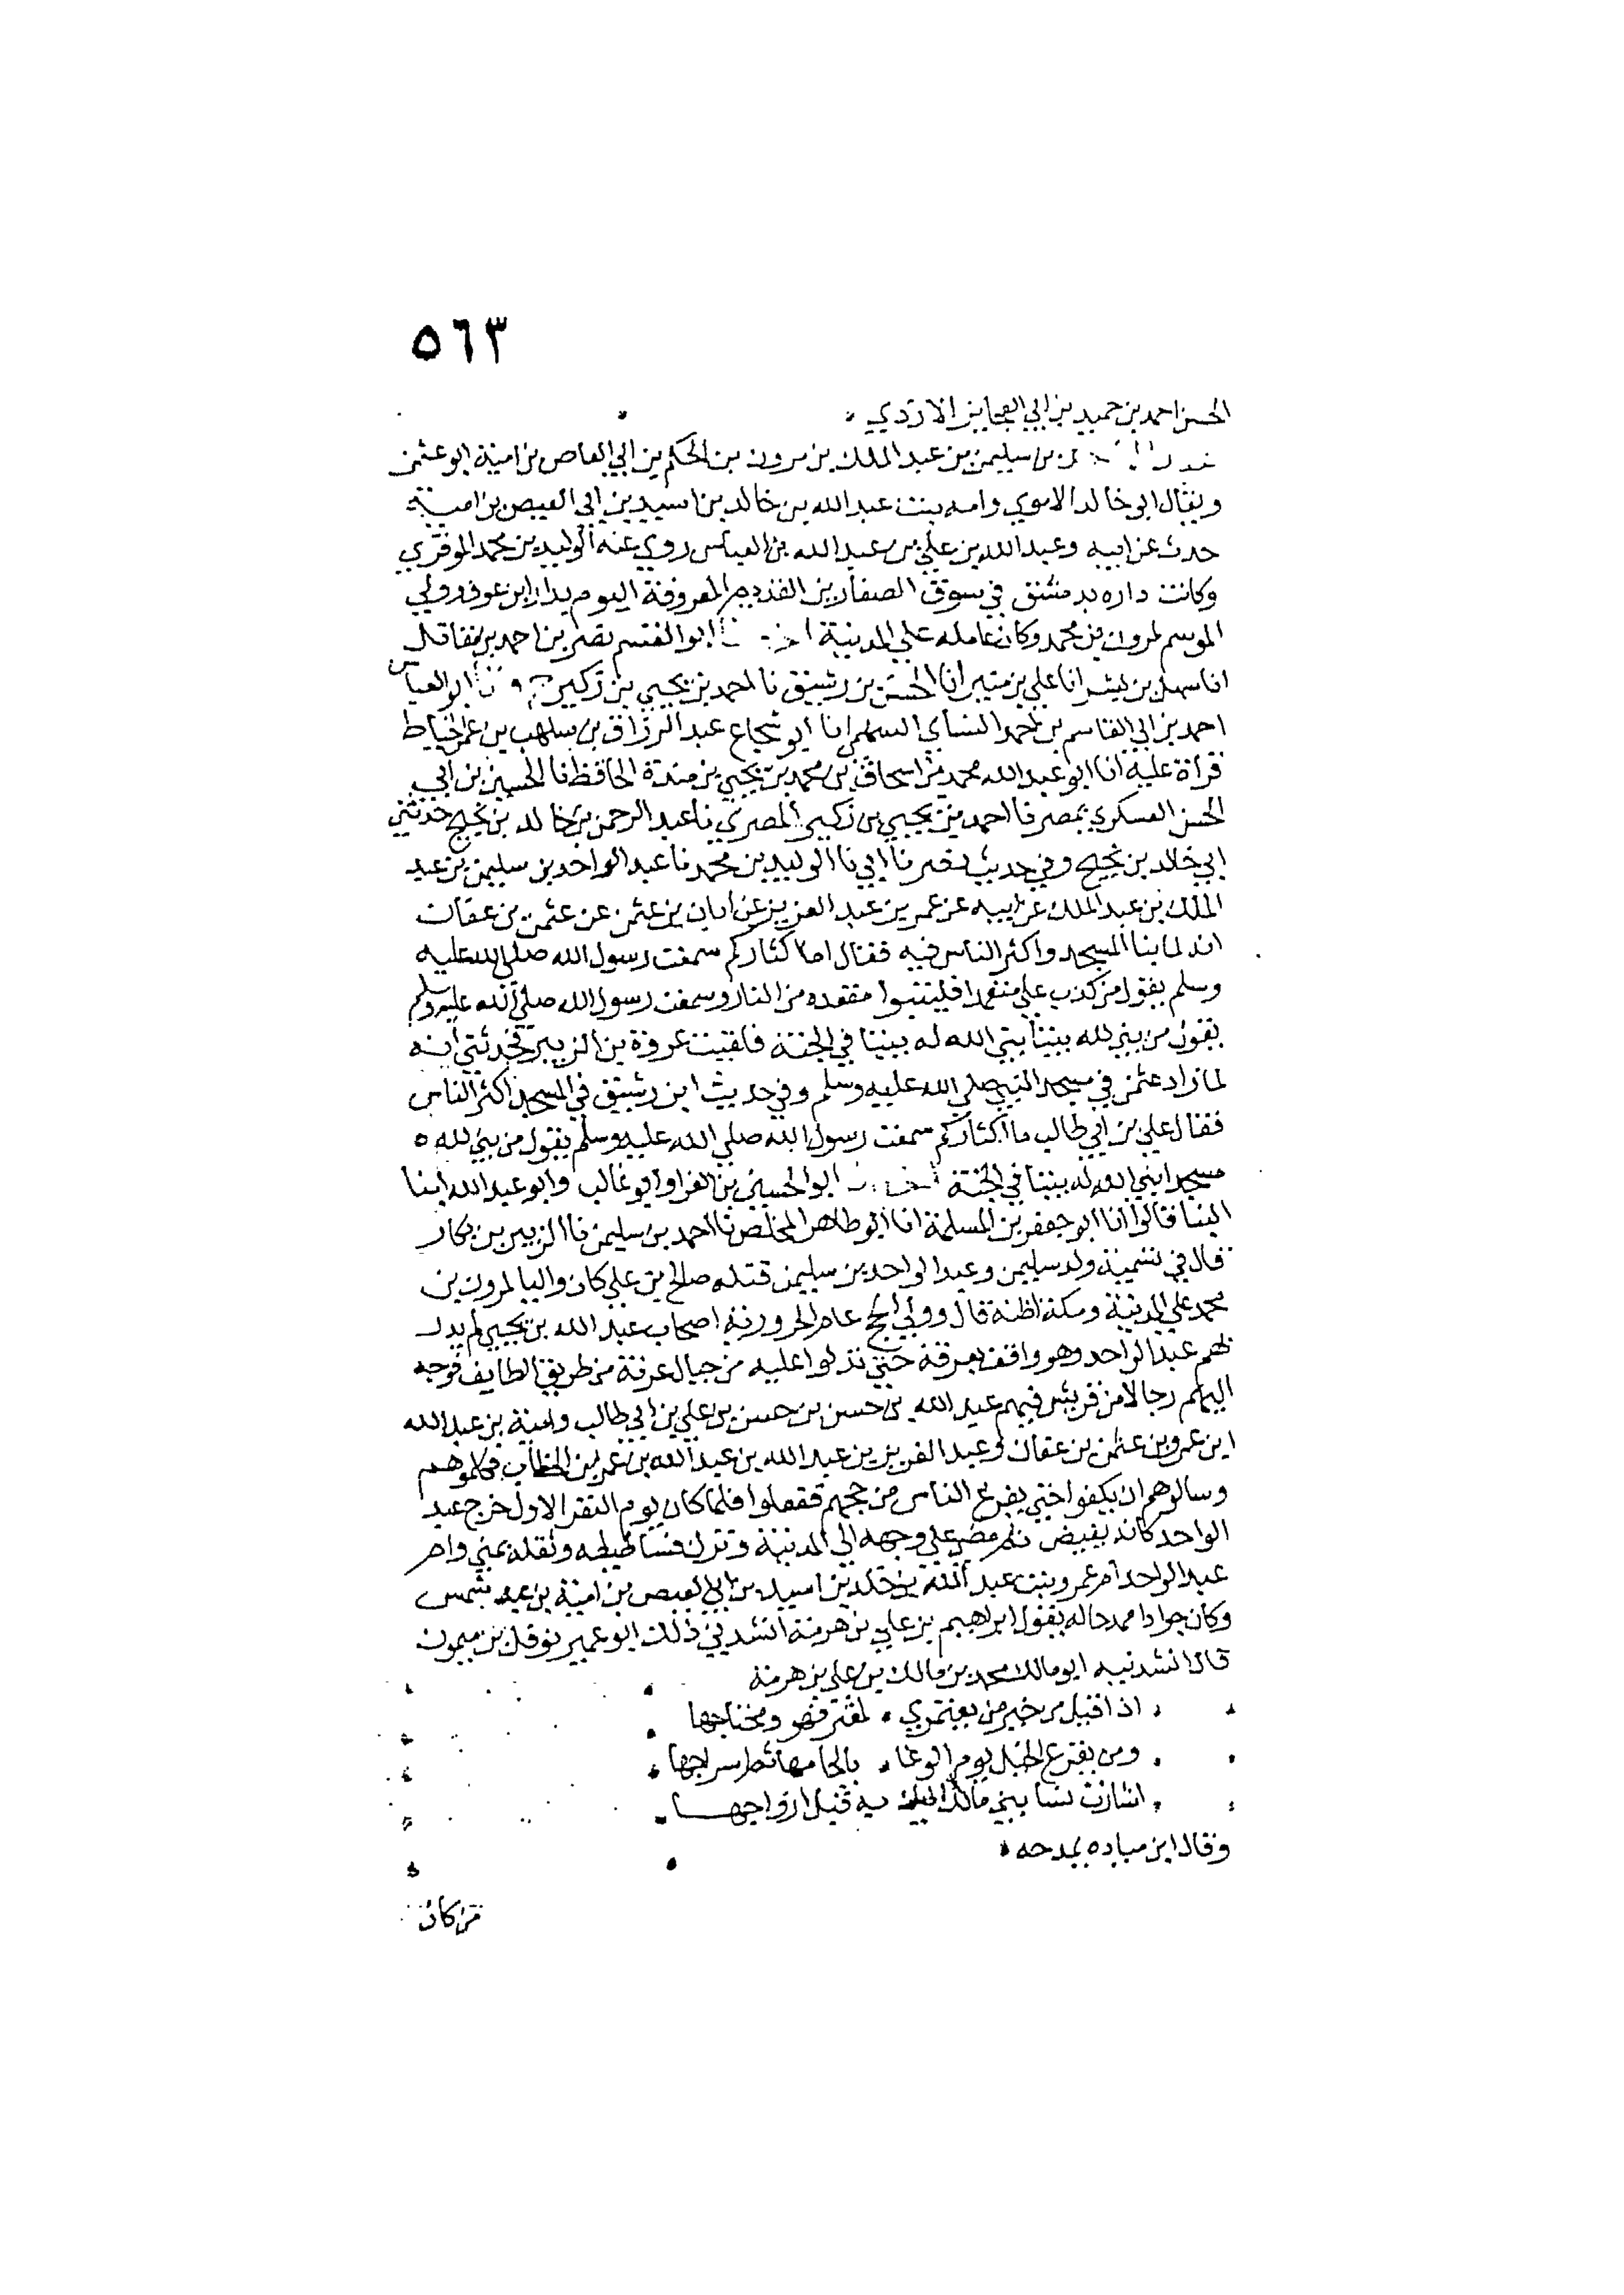 ٥٦٣
الحسن احمد بن حميد بن ابي العجايز الازدي
بن سليمن بن عبد الملك بن مرون بن الحكم بن ابي العاص بن امية ابو عثمن
ويقال ابو خالد الاموي وامه بنت عبد الله بن خالد بن اسيد بن ابي العيص بن امية
حدث عن ابيه وعبد الله بن علي بن عبد الله بن العباس روي عنه الوليد بن محمد الموقري
وكانت داره بدمشق في سوق الصفارين القديم المعروفة اليوم بدار ابن عوف وولي
الموسم لمرون بن محمد وكان عامله علي المدينة ابو القسم نصر بن احمد بن مقاتل
انا سهل بن بشر انا علي بن منير انا الحسن بن رشيق نا احمد بن يحيي بن زكير ابو العباس
احمد بن ابي القاسم بن احمد السهلي انا ابو شجاع عبد الرزاق بن سلهب بن عمر الخياط
قراة عليه انا ابو عبد الله محمد بن اسحاق بن محمد بن يحيي بن مندة الحافظ نا الحسين بن ابي
الحسن العسكري بمصر نا احمد بن يحيي بن زكير المصري نا عبد الرحمن بن خالد بن نجيح حدثني
ابي خالد بن نجيح وفي حديث نصر نا ابي نا الوليد بن محمد نا عبد الواحد بن سليمن بن عبد
الملك بن عبد الملك عن ابيه عن عمر بن عبد العزيز عن ابان بن عثمن عن عثمن بن عفان
انه لما بنا المسجد واكثر الناس فيه فقال اما اكثاركم سمعت رسول الله صلي الله عليه
وسلم يقول من كذب علي متعمدا فليتبوا مقعده من النار وسمعت رسول الله صلي الله عليه وسلم
يقول من بني لله بيتا بني الله له بيتا في الجنة فلقيت عروة بن الزبير فحدثني انه
لما زاد عثمن في مسجد النبي صلي الله عليه وسلم وفي حديث ابن رشيق في المسجد اكثر الناس
فقال علي بن ابي طالب ما اكثاركم سمعت رسول الله صلي الله عليه وسلم يقول من بني لله
مسجدا بني الله له بيتا في الجنة ابو الحسين بن الفرا وابو غالب وابو عبد الله ابنا
البنا قالوا انا ابو جعفر بن المسلمة انا ابو طاهر المخلص نا احمد بن سليمن نا الزبير بن بكار
قال في تسمية ولد سليمن وعبد الواحد بن سليمن قتله صالح بن علي كان واليا لمرون بن
محمد علي المدينة ومكة اظنه قال وولي الحج عام الحرورية اصحاب عبد الله بن يحيي لم يدر
بهم عبد الواحد وهو واقف بعرفة حتي تدلوا عليه من جبال عرفة من طريق الطايف فوجه
اليهم رجالا من قريش فيهم عبد الله بن حسن بن حسن بن علي بن ابي طالب وامية بن عبد الله
ابن عمرو بن عثمن بن عفان وعبد العزيز بن عبد الله بن عبد الله بن عمر بن الخطاب فكلموهم
وسالوهم ان يكفوا حتي يفرغ الناس من حجهم ففعلوا فلما كان يوم النفر الاول خرج عبد
الواحد كانه يفيض ثم مضي علي وجهه الي المدينة وترك فساطيطه وثقله بمني وام
عبد الواحد ام عمرو بنت عبد الله بن خلد بن اسيد بن ابي العيص بن امية بن عبد شمس
وكان جوادا ممدحا له يقول ابراهيم بن علي بن هرمة انشدني ذلك ابو عمير نوفل بن ميمون
قال انشدنيه ابو مالك محمد بن مالك بن علي بن هرمة
اذا قيل من خير من يعتري لمعتر فهر ومحتاجها
ومن يقرع الخيل يوم الوغا بالجامها ثم اسراجها
اشارت نسا بني مالك اليك به قبل ازواجهــا
وقال ابن مياده يمدحه
من كان